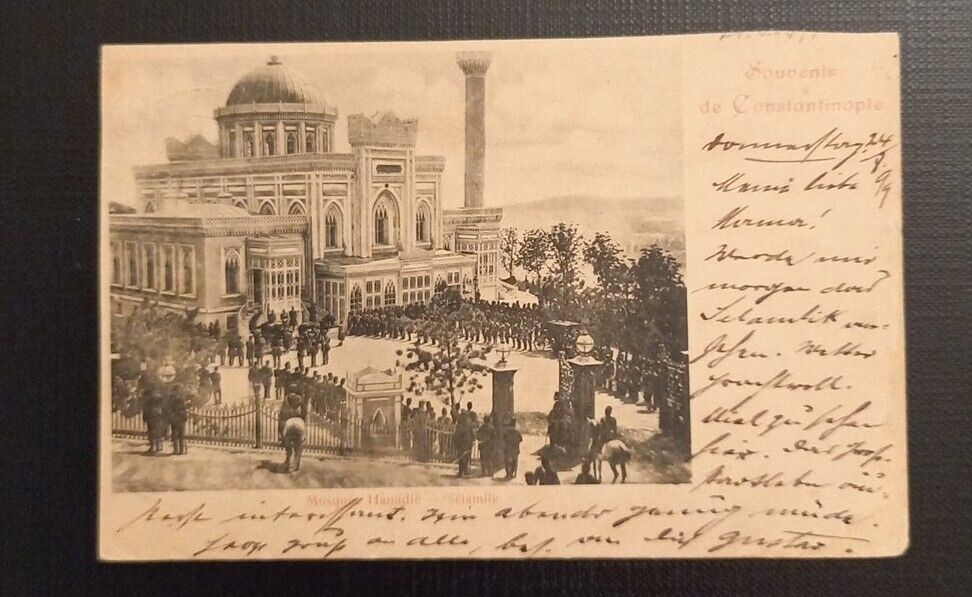 Souvenir
de Constantinople
Donnerstag, 24/8 99
Meine liebe
Mama!
Werde mir
morgen das
Selamlik an-
sehen. Wetter
prachtvoll.
Viel zu sehen
hier. Das
Mosquée Hamidié — Sélamlik
interessant. Bin abends genug müde.
grüße an alle, bes. an dich Gustav